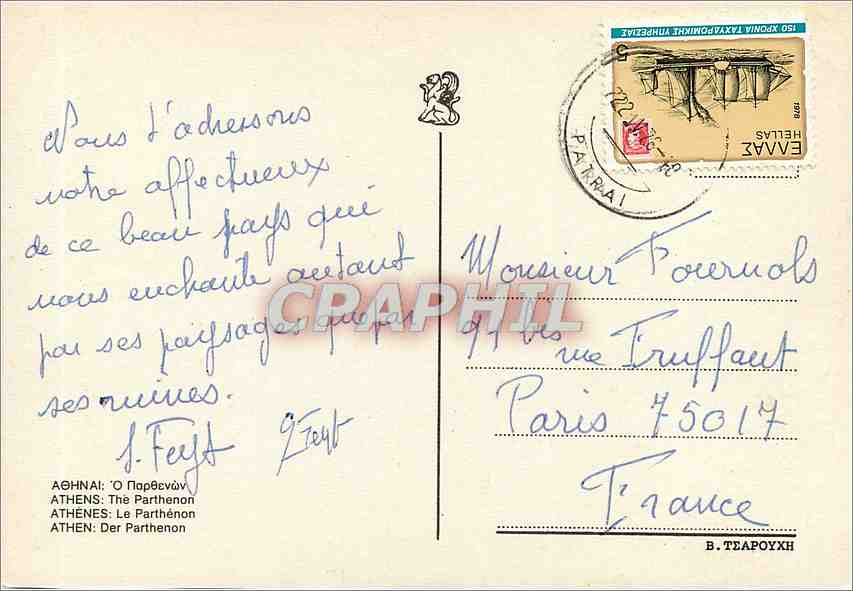 Nous t'adressons
notre affectueux
de ce beau pays qui
nous enchante autant
par ses paysages que par
ses ruines.
J. Feyt
Feyt
ΑΘΗΝΑΙ: Ὁ Παρθενών
ATHENS: The Parthenon
ATHÈNES: Le Parthénon
ATHEN: Der Parthenon
150 ΧΡΟΝΙΑ ΤΑΧΥΔΡΟΜΙΚΗΣ ΥΠΗΡΕΣΙΑΣ
5
1978
HELLAS
ΕΛΛΑΣ
PATRAI
Monsieur Fournols
91 bis
rue Truffaut
Paris 75017
France
Β. ΤΣΑΡΟΥΧΗ
CPAPHIL